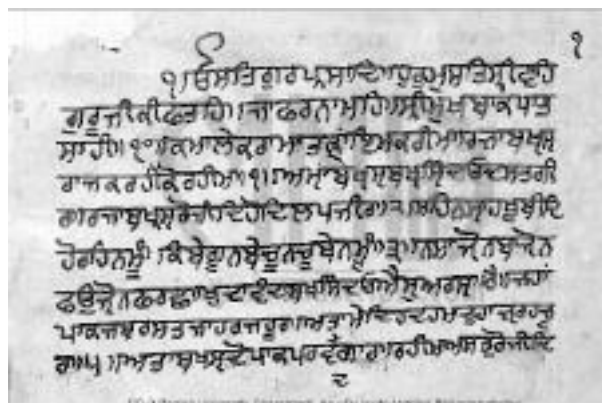 ੧
ੴਸਤਿਗੁਰਪ੍ਰਸਾਦਿ॥ਹੁਕਮੁਸਤਿਸ੍ਰੀਵਾਹਿ
ਗੁਰੂਜੀਕੀਫਤਹਿ॥ਜਾਫਰਨਾਮਹਿਸ੍ਰੀਮੁਖਬਾਕਪਾਤ
ਸਾਹੀ॥੧੦॥ਕਮਾਲੇਕਰਾਮਾਤਕਾਇਮਕਰੀਮ॥ਰਜਾਬਖਸ
ਰਾਜਕਰਹਾਕੋਰਹੀਮ॥੧॥ਅਮਾਬਖਸਬਖਸਿੰਦਓਦਸਤਗੀ
ਰ॥ਰਜਾਬਖਸਰੋਜੀਦਿਹੋਦਿਲਪਜੀਰ॥੨॥ਸਹਿਨਸਾਹਖੂਬੀਦਿ
ਹੋਰਹਿਨਮੂੰ॥ਕਿਬੇਗੂਨਬੇਚੂਨਚੂਬੇਨਮੂੰ॥੩॥ਨਸਾਜੋਨਬਾਜੋਨ
ਫਉਜੋਨਫਰਸ॥ਖੁਦਾਵੰਦਬਖਸਿੰਦਓਐਸੁਅਰਸ॥੪॥ਜਹਾਂ
ਪਾਕਜਬਰਸਤਜਾਹਰਜਹੂਰ॥ਅਤਾਮੇਦਿਹਦਹਮਚੁਹਾਜਰਹਜੂ
ਰ॥੫॥ਅਤਾਬਖਸਓਪਾਕਪਰਵਰਦਗਾਰ॥ਰਹੀਮਅਸਤਰੋਜੀਦਿ